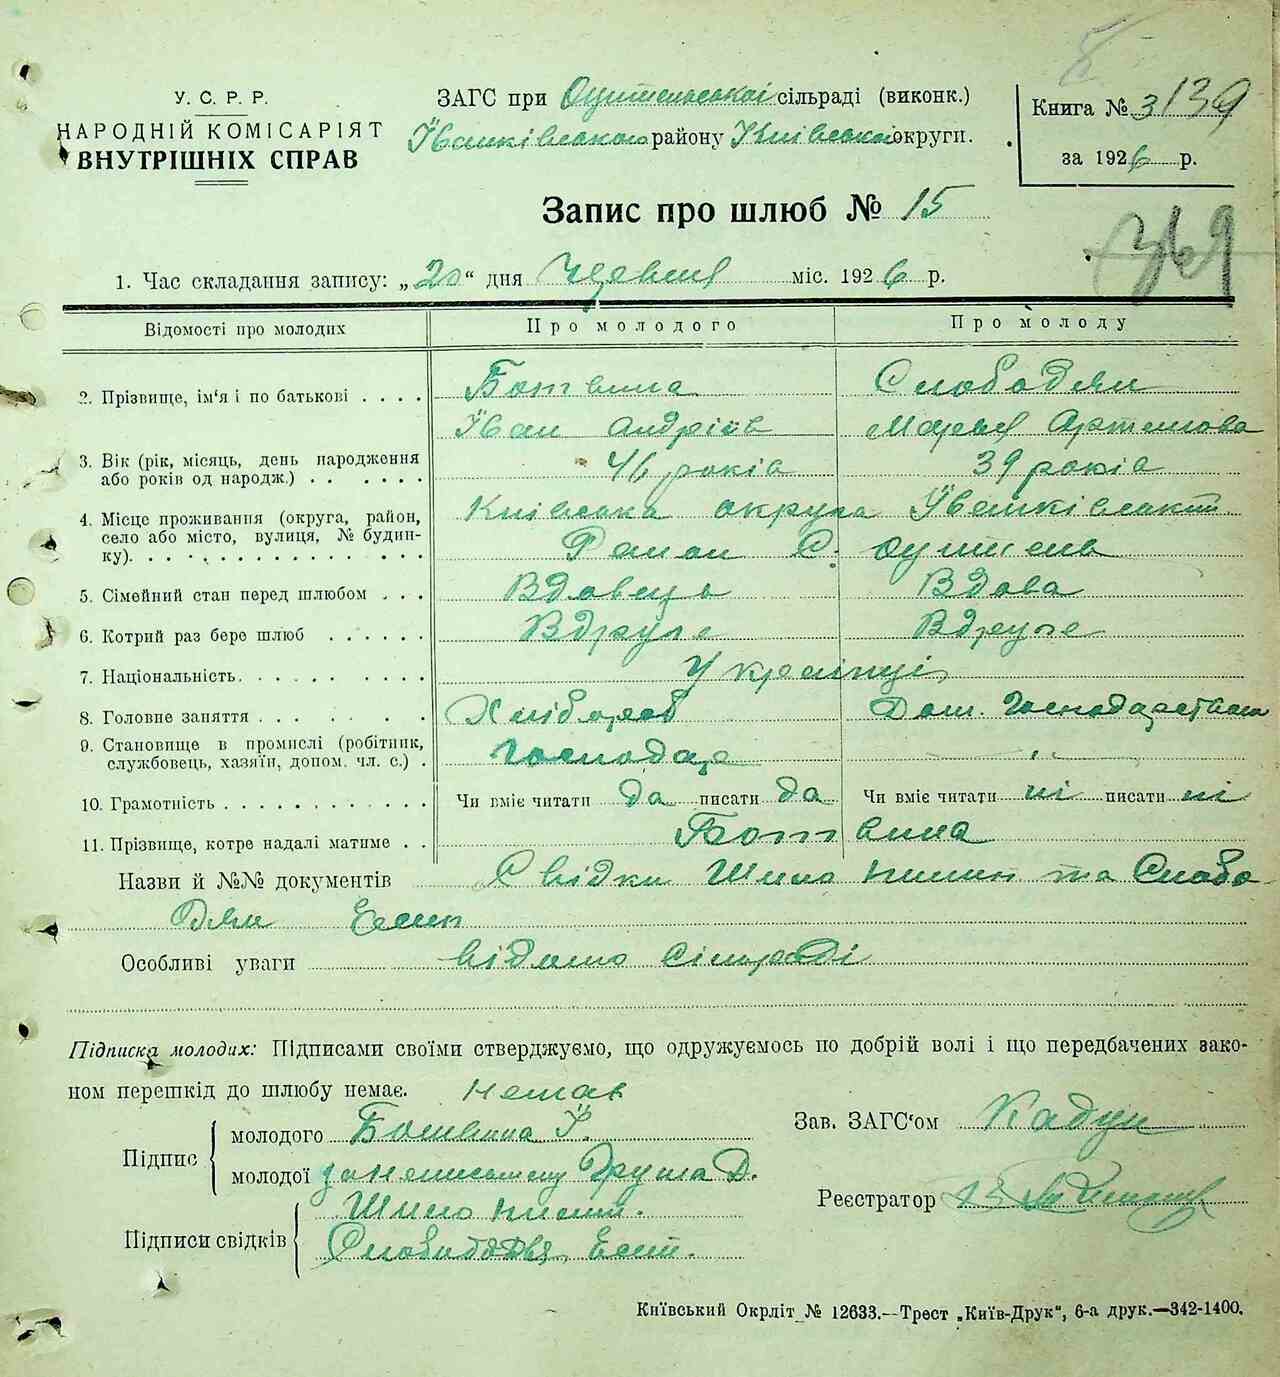 У. С. Р. Р.
НАРОДНІЙ КОМІСАРІЯТ
ВНУТРІШНІХ СПРАВ
ЗАГС при сільраді (виконк.)
Іванківського району Київської округи.
Книга № 3 139
за 1926 р.
Запис про шлюб № 15
369
1. Час складання запису: „20“ дня Червня міс. 1926 р.
Відомості про молодих
Про молодого
Про молоду
2. Прізвище, ім'я і по батькові
Ботвина
Слободян
Іван Андріїв
Марья Артемова
3. Вік (рік, місяць, день народження або років од народж.)
46 років
39 років
4. Місце проживання (округа, район, село або місто, вулиця, № будинку).
Київська округа Іванківський
Раїон С.
5. Сімейний стан перед шлюбом
Вдовець
Вдова
6. Котрий раз бере шлюб
Вдруге
Вдруге
7. Національність
Українці
8. Головне заняття
Хлібороб
Дом. Господарством
9. Становище в промислі (робітник, службовець, хазяїн, допом. чл. с.)
Господар
"
10. Грамотність
Чи вміє читати да писати да
Чи вміє читати ні писати ні
11. Прізвище, котре надалі матиме
Ботвина
Назви й №№ документів
Свідки Шило та Слобо
дян
Особливі уваги
відомо Сільраді
Підписка молодих: Підписами своїми стверджуємо, що одружуємось по добрій волі і що передбачених зако-
ном перешкід до шлюбу немає. немає
Підпис
молодого Ботвина І.
молодої Груша Д.
Підписи свідків
Шило
Зав. ЗАГС'ом Кадун
Реєстратор
Київський Окрліт № 12633.—Трест „Київ-Друк“, 6-а друк.—342-1400.